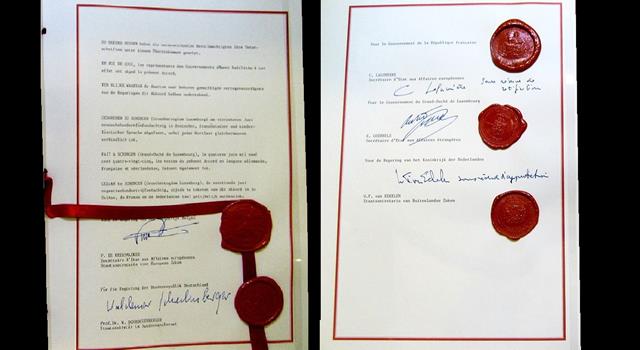 ZU URKUND DESSEN haben die unterzeichneten Bevollmächtigten ihre Unter-
schriften unter dieses Übereinkommen gesetzt.
EN FOI DE QUOI, les représentants des Gouvernements dûment habilités à cet
effet ont signé le présent Accord.
TEN BLIJKE WAARVAN de daartoe naar behoren gemachtigde vertegenwoordigers
van de Regeringen dit Akkoord hebben ondertekend.
GESCHEHEN ZU SCHENGEN (Grossherzogtum Luxemburg) am vierzehnten Juni
neunzehnhundertfünfundachtzig, in deutscher, französischer und nieder-
ländischer Sprache abgefasst, wobei jeder Wortlaut gleichermassen
verbindlich ist.
FAIT à SCHENGEN (Grand-Duché de Luxembourg), le quatorze juin mil neuf
cent quatre-vingt-cinq, les textes du présent Accord en langues allemande,
française et néerlandaise, faisant également foi.
GEDAAN te SCHENGEN (Groothertogdom Luxemburg), de veertiende juni
negentienhonderdvijfentachtig, zijnde de teksten van dit Akkoord in de
Duitse, de Franse en de Nederlandse taal gelijkelijk authentiek.
P. DE KEERSMAEKER
Secrétaire d'Etat aux Affaires européennes
Staatssecretaris voor Europese Zaken
Für die Regierung der Bundesrepublik Deutschland
Waldemar Schreckenberger
Prof. Dr. W. SCHRECKENBERGER
Staatssekretär im Bundeskanzleramt
Pour le Gouvernement de la République française
C. LALUMIERE
Secrétaire d'Etat aux Affaires européennes
C Lalumière
Sous réserve de
Pour le Gouvernement du Grand-Duché de Luxembourg
G. GOEBBELS
Secrétaire d'Etat aux Affaires étrangères
Voor de Regering van het Koninkrijk der Nederlanden
sous réserve d'approbation
W.F. van EEKELEN
Staatssecretaris van Buitenlandse Zaken